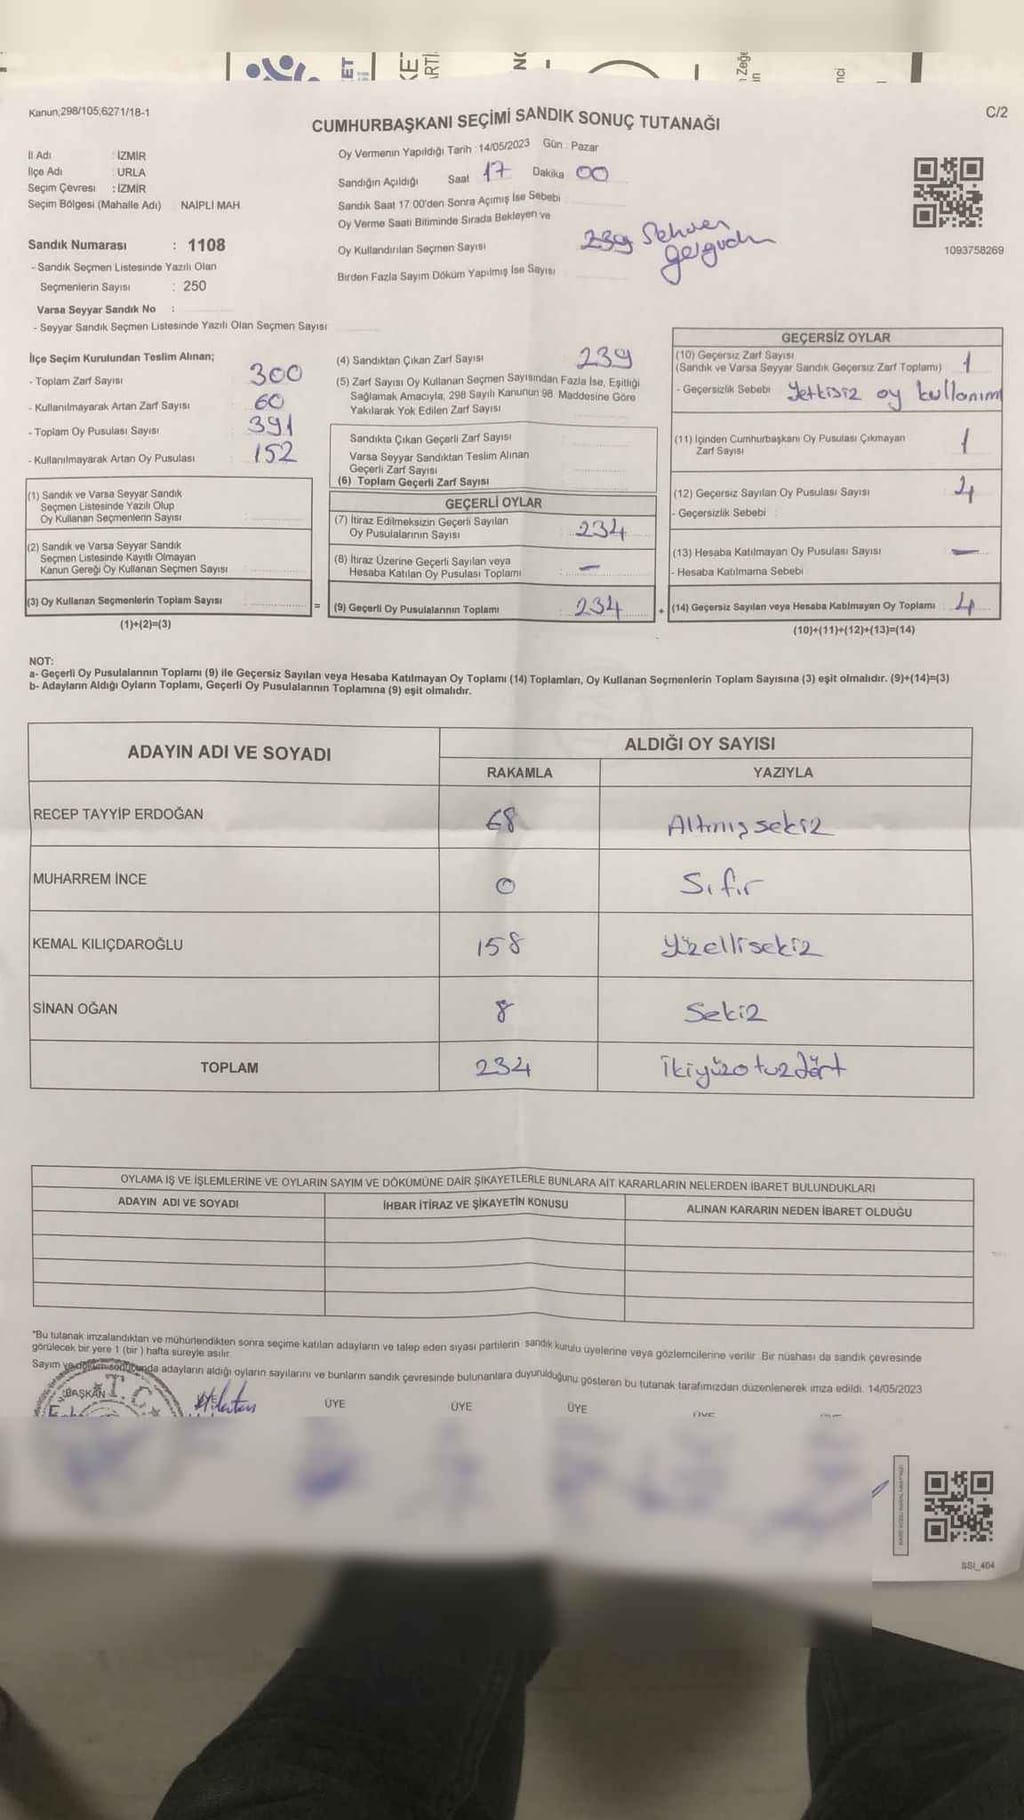 Kanun;298/105;6271/18-1
C/2
CUMHURBAŞKANI SEÇİMİ SANDIK SONUÇ TUTANAĞI
İl Adı : İZMİR
İlçe Adı : URLA
Seçim Çevresi : İZMİR
Seçim Bölgesi (Mahalle Adı) NAİPLİ MAH
Sandık Numarası : 1108
- Sandık Seçmen Listesinde Yazılı Olan
Seçmenlerin Sayısı : 250
Varsa Seyyar Sandık No :
- Seyyar Sandık Seçmen Listesinde Yazılı Olan Seçmen Sayısı
Oy Vermenin Yapıldığı Tarih : 14/05/2023 Gün : Pazar
Sandığın Açıldığı Saat 17 Dakika 00
Sandık Saat 17:00'den Sonra Açımış İse Sebebi
Oy Verme Saati Bitiminde Sırada Bekleyen ve
Oy Kullandırılan Seçmen Sayısı 239 Sehven
Birden Fazla Sayım Döküm Yapılmış İse Sayısı
1093758269
İlçe Seçim Kurulundan Teslim Alınan;
- Toplam Zarf Sayısı 300
- Kullanılmayarak Artan Zarf Sayısı 60
- Toplam Oy Pusulası Sayısı 391
- Kullanılmayarak Artan Oy Pusulası 152
(1) Sandık ve Varsa Seyyar Sandık
Seçmen Listesinde Yazılı Olup
Oy Kullanan Seçmenlerin Sayısı
(2) Sandık ve Varsa Seyyar Sandık
Seçmen Listesinde Kayıtlı Olmayan
Kanun Gereği Oy Kullanan Seçmen Sayısı
(3) Oy Kullanan Seçmenlerin Toplam Sayısı
(1)+(2)=(3)
=
(4) Sandıktan Çıkan Zarf Sayısı 239
(5) Zarf Sayısı Oy Kullanan Seçmen Sayısından Fazla İse, Eşitliği
Sağlamak Amacıyla, 298 Sayılı Kanunun 98. Maddesine Göre
Yakılarak Yok Edilen Zarf Sayısı
Sandıkta Çıkan Geçerli Zarf Sayısı
Varsa Seyyar Sandıktan Teslim Alınan
Geçerli Zarf Sayısı
(6) Toplam Geçerli Zarf Sayısı
GEÇERLİ OYLAR
(7) İtiraz Edilmeksizin Geçerli Sayılan
Oy Pusulalarının Sayısı 234
(8) İtiraz Üzerine Geçerli Sayılan veya
Hesaba Katılan Oy Pusulası Toplamı -
(9) Geçerli Oy Pusulalarının Toplamı 234
+
GEÇERSİZ OYLAR
(10) Geçersiz Zarf Sayısı
(Sandık ve Varsa Seyyar Sandık Geçersiz Zarf Toplamı) 1
- Geçersizlik Sebebi Yetkisiz oy kullanım
(11) İçinden Cumhurbaşkanı Oy Pusulası Çıkmayan
Zarf Sayısı 1
(12) Geçersiz Sayılan Oy Pusulası Sayısı 4
- Geçersizlik Sebebi :
(13) Hesaba Katılmayan Oy Pusulası Sayısı -
- Hesaba Katılmama Sebebi
(14) Geçersiz Sayılan veya Hesaba Katılmayan Oy Toplamı 4
(10)+(11)+(12)+(13)=(14)
NOT:
a- Geçerli Oy Pusulalarının Toplamı (9) ile Geçersiz Sayılan veya Hesaba Katılmayan Oy Toplamı (14) Toplamları, Oy Kullanan Seçmenlerin Toplam Sayısına (3) eşit olmalıdır. (9)+(14)=(3)
b- Adayların Aldığı Oyların Toplamı, Geçerli Oy Pusulalarının Toplamına (9) eşit olmalıdır.
ADAYIN ADI VE SOYADI ALDIĞI OY SAYISI
RAKAMLA YAZIYLA
RECEP TAYYİP ERDOĞAN 68 Altmış sekiz
MUHARREM İNCE 0 Sıfır
KEMAL KILIÇDAROĞLU 158 Yüzellisekiz
SİNAN OĞAN 8 Sekiz
TOPLAM 234 İkiyüzotuzdört
OYLAMA İŞ VE İŞLEMLERİNE VE OYLARIN SAYIM VE DÖKÜMÜNE DAİR ŞİKAYETLERLE BUNLARA AİT KARARLARIN NELERDEN İBARET BULUNDUKLARI
ADAYIN ADI VE SOYADI İHBAR İTİRAZ VE ŞİKAYETİN KONUSU ALINAN KARARIN NEDEN İBARET OLDUĞU
*Bu tutanak imzalandıktan ve mühürlendikten sonra seçime katılan adayların ve talep eden siyasi partilerin sandık kurulu üyelerine veya gözlemcilerine verilir. Bir nüshası da sandık çevresinde
görülecek bir yere 1 (bir) hafta süreyle asılır.
Sayım ve döküm sonucunda adayların aldığı oyların sayılarını ve bunların sandık çevresinde bulunanlara duyurulduğunu gösteren bu tutanak tarafımızdan düzenlenerek imza edildi. 14/05/2023
BAŞKAN T.C. ÜYE ÜYE ÜYE
SSI_404